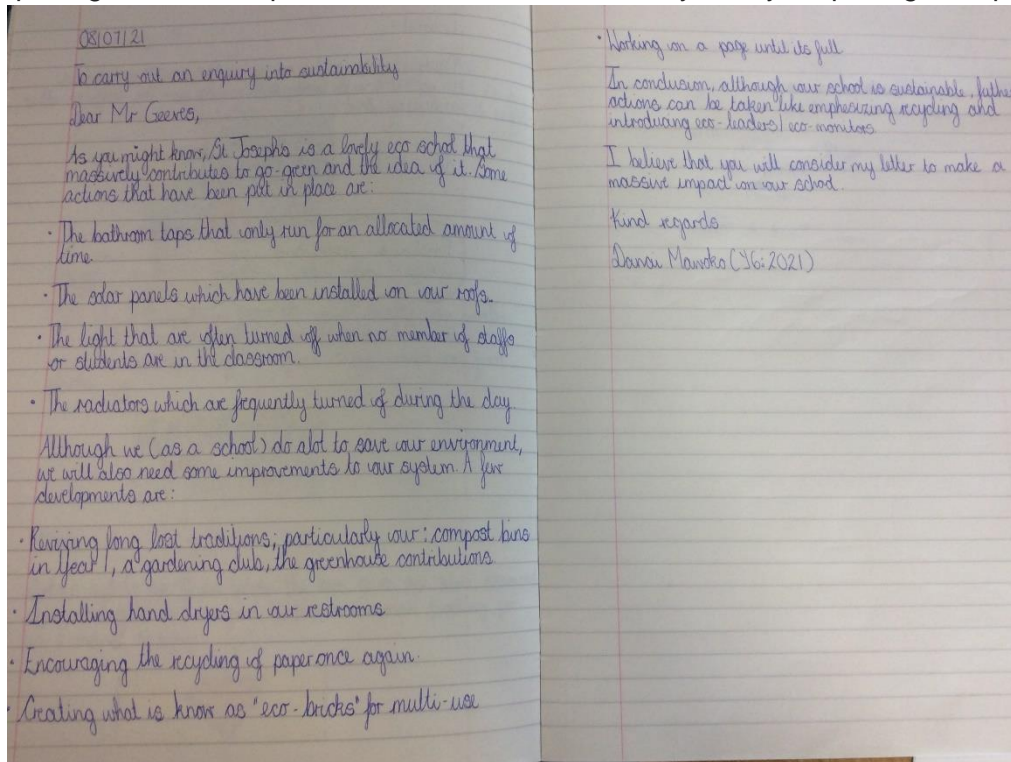 08/07/21
To carry out an enquiry into sustainability
Dear Mr Geeves,
As you might know, St Josephs is a lovely eco school that
massively contributes to go-green and the idea of it. Some
actions that have been put in place are:
· The bathroom taps that only run for an allocated amount of
time.
· The solar panels which have been installed on our roofs.
· The light that are often turned off when no member of staffs
or students are in the classroom.
· The radiators which are frequently turned of during the day
Although we (as a school) do alot to save our environment,
we will also need some improvements to our system. A few
developments are:
· Reviving long lost traditions; particularly our: compost bins
in Year 1, a gardening club, the greenhouse contributions.
· Installing hand dryers in our restrooms
· Encouraging the recycling of paper once again.
· Creating what is know as "eco-bricks" for multi-use
· Working on a page until its full
In conclusion, although our school is sustainable, futher
actions can be taken like emphesizing recycling and
introducing eco-leaders/eco-monitors.
I believe that you will consider my letter to make a
massive impact on our school.
Kind regards
(Y6:2021)